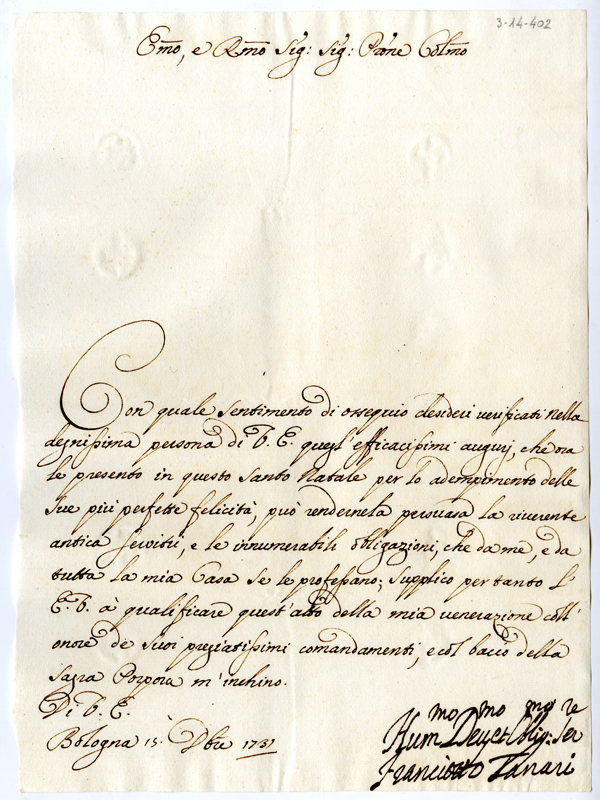 3-14-402
Emo, e Rmo Sig: Sig: Prone Colmo
Con quale sentimento di ossequio desideri verificati nella
degnissima persona di V. E. quest'efficacissimi augurj, che ora
le presento in questo Santo Natale per lo adempimento delle
sue più perfette felicità, può rendernela persuasa la riverente
antica servitù, e le innumerabili obligazioni, che da me, e da
tutta la mia Casa se le professano; supplico per tanto l'
E. V. à qualificare quest'atto della mia venerazione coll'
onore de suoi pregiatissimi comandamenti, e col bacio della
Sagra Porpora m'inchino.
Di V. E.
Bologna 15. Xbre 1731
Hummo Devmo et Obligmo: Serre
Franciotto Tanari